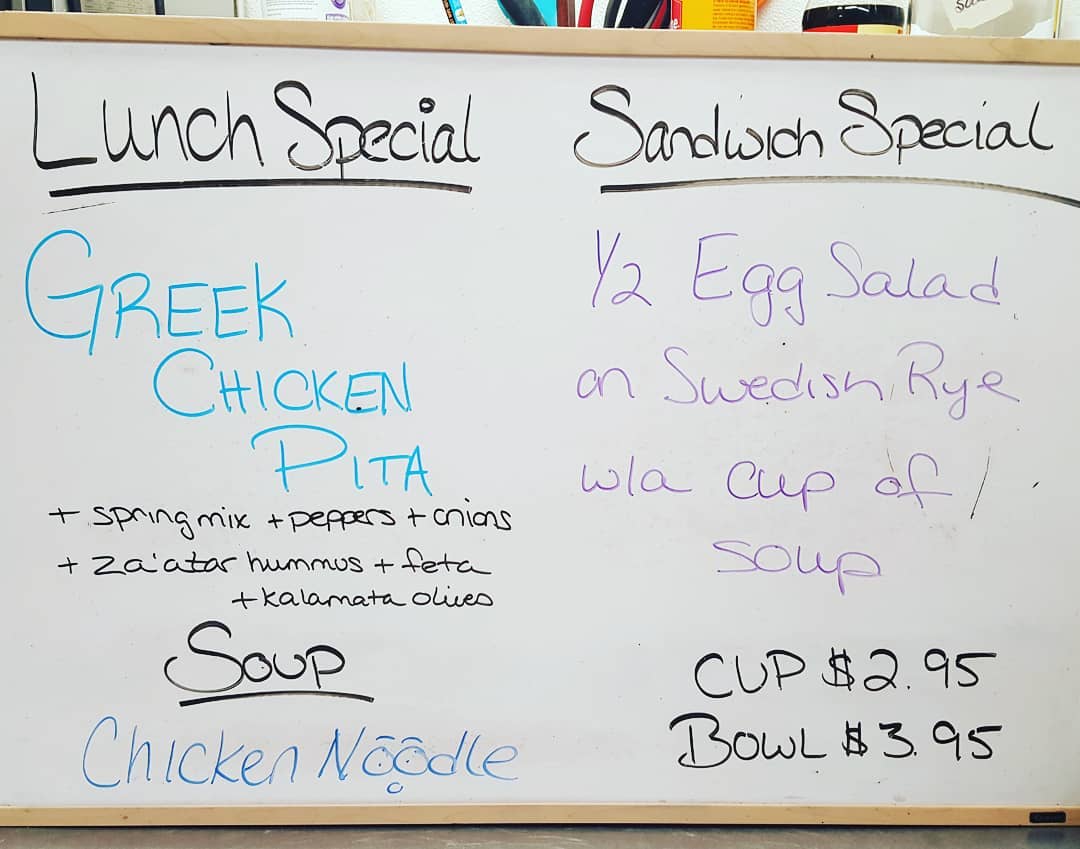 Lunch Special
GREEK
CHICKEN
PITA
+ spring mix + peppers + onions
+ za'atar hummus + feta
+ kalamata olives
SOUP
Chicken Noodle
Sandwich Special
1/2 Egg Salad
on Swedish Rye
w/a cup of
soup
CUP $2.95
BOWL $3.95